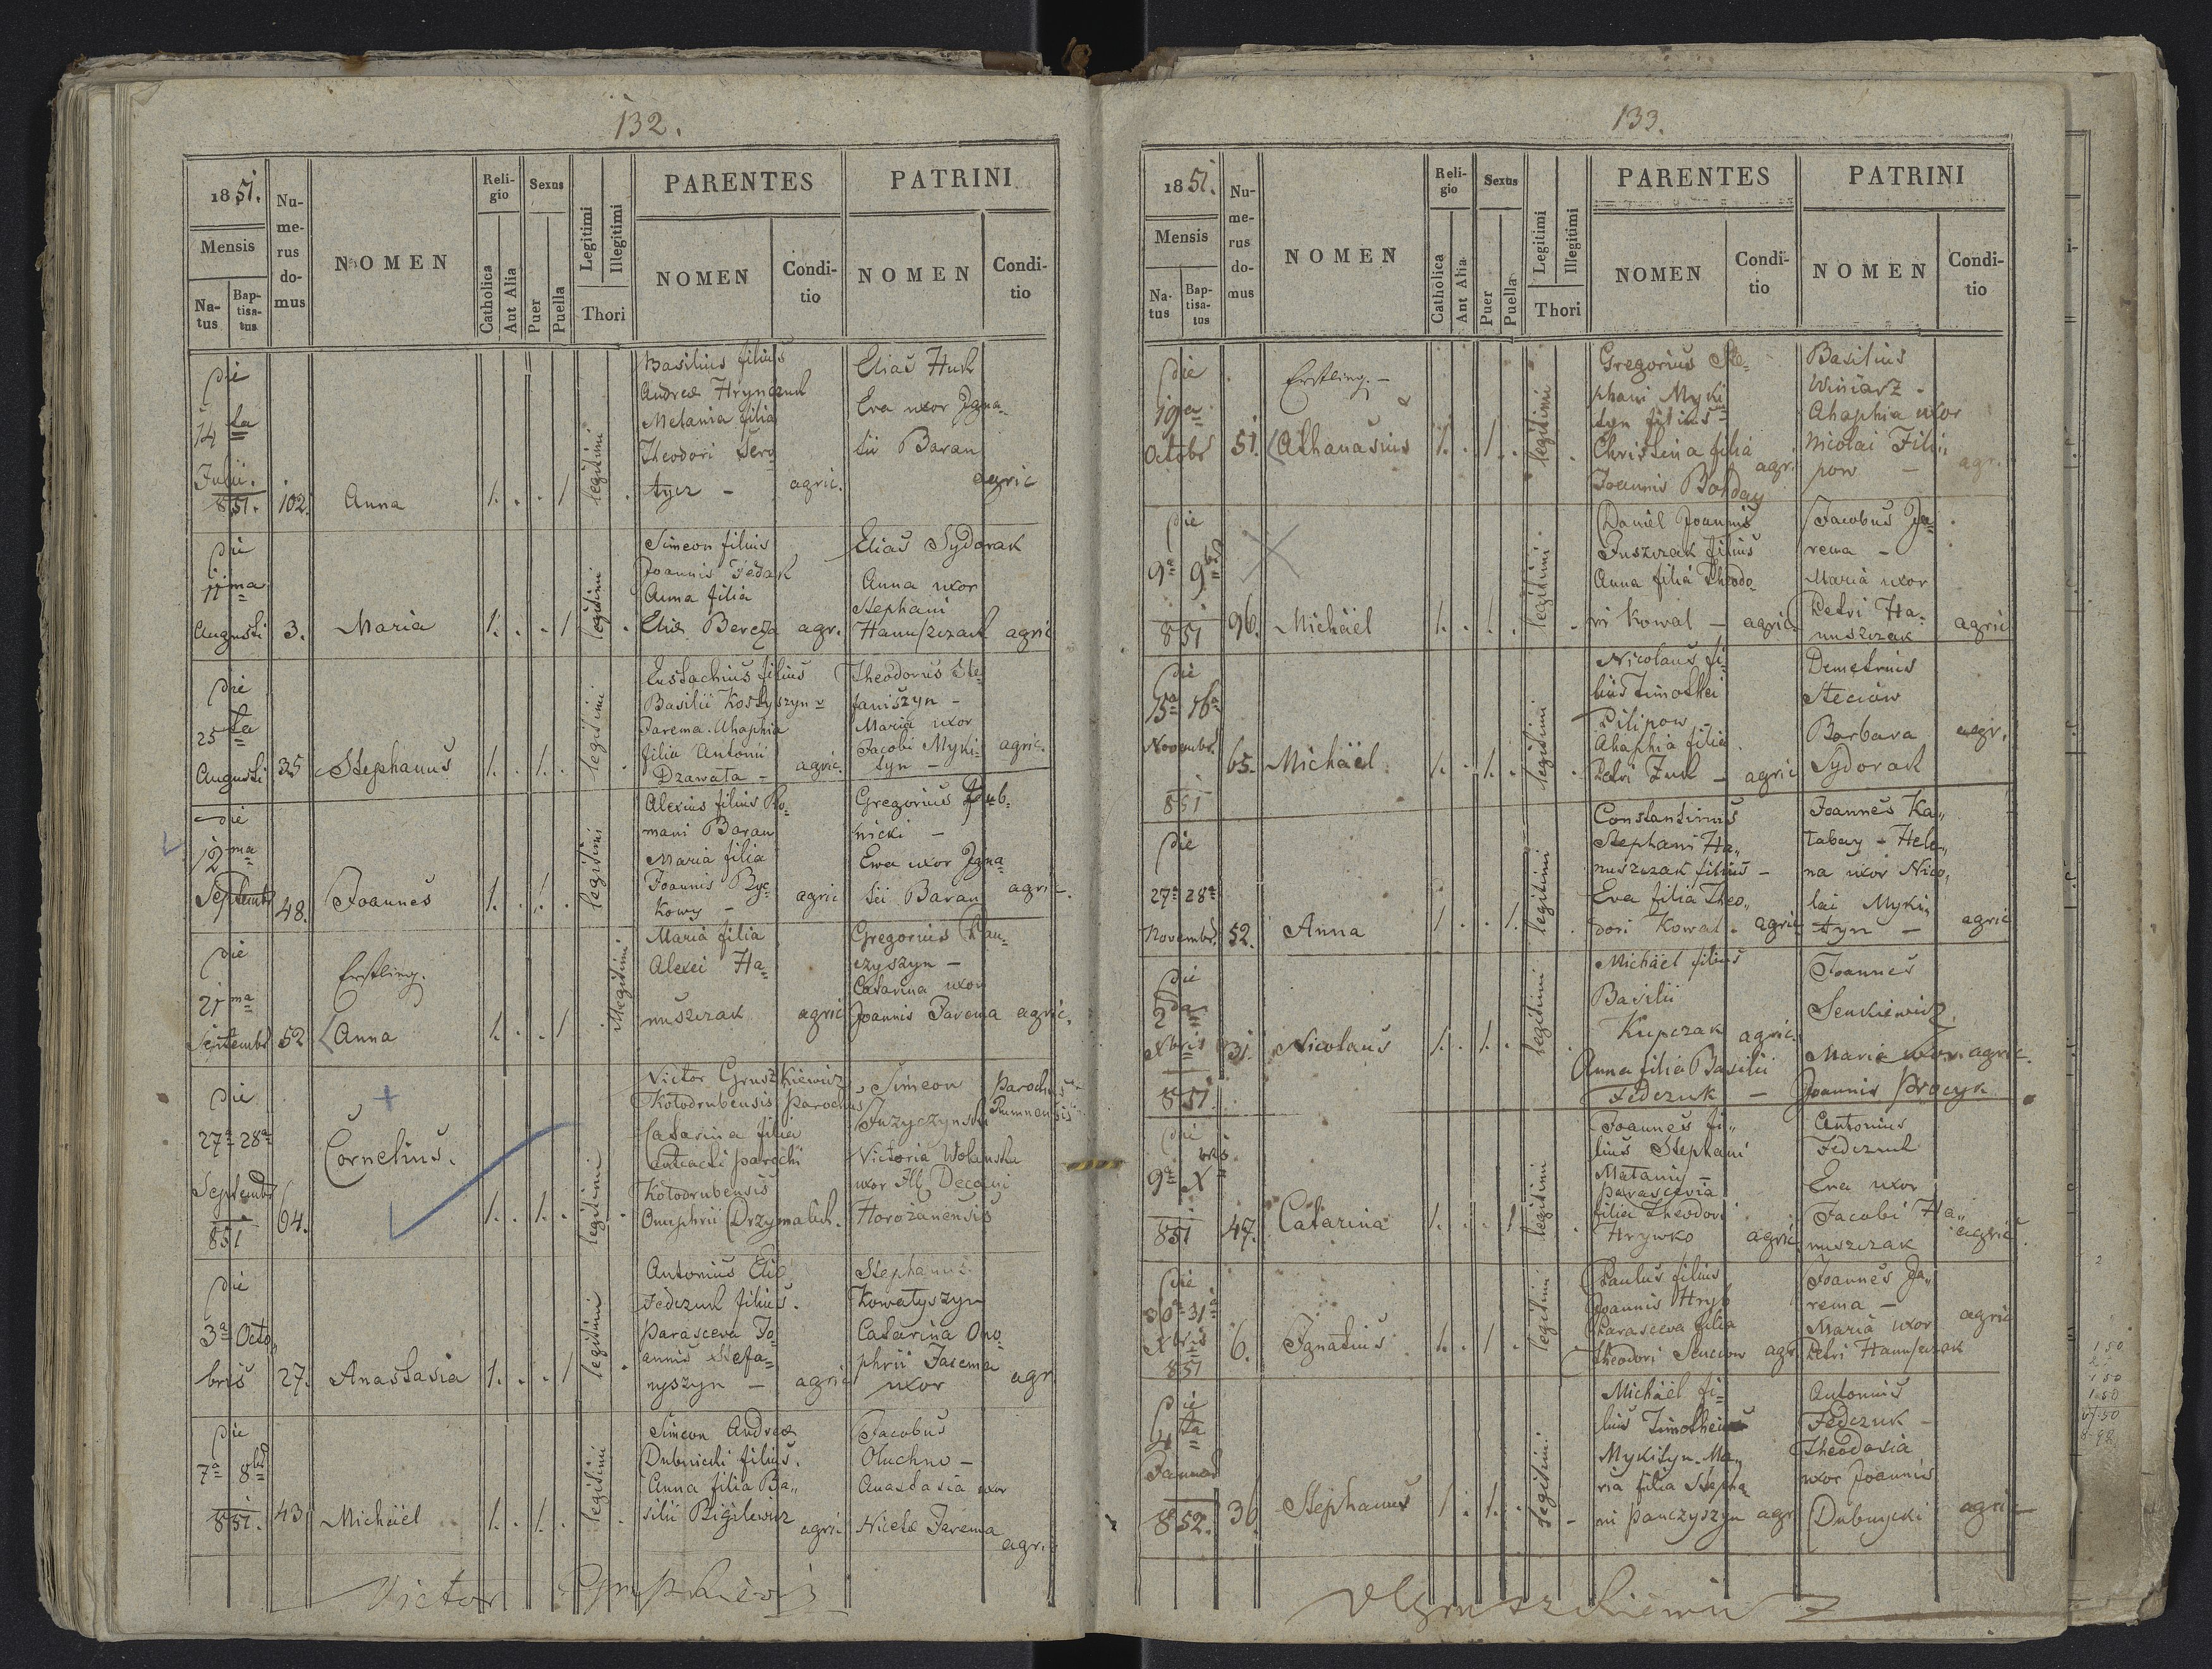 132.
1851.
Numerus domus
NOMEN
Religio
Sexus
Legitimi
Illegitimi
PARENTES
PATRINI
Mensis
Natus
Baptisatus
Catholica
Aut Alia
Puer
Puella
Thori
NOMEN
Conditio
NOMEN
Conditio
Die
14ta
Julii.
851.
102.
Anna
1. . . 1
legitimi
Basilius filius
Andreæ Hrynczuk
Melania filia
Theodori
tycz - agric.
Elias Huk
Eva uxor Igna=
tii Baran
agric
Die
11ma
Augusti
3.
Maria
1. . . 1
legitimi
Simeon filius
Joannis Fedak
Anna filia
Eliæ Bereza agr.
Elias Sydorak
Anna uxor
Stephani
Hanuszczak agric
Die
25ta
Augusti
35
Stephanus
1. . 1. .
legitimi
Eustachius filius
Basilii Kostyszyn v
Jarema. Ahaphia
filia Antonii
Dzawata - agric.
Theodorus Ste=
faniszyn -
Maria uxor
Jacobi Myki=
tyn - agric.
Die
12ma
Septembr
48.
Joannes
1. . 1. .
legitimi
Alexius filius Ro=
mani Baran
Maria filia
Joannis Byc=
kowy - agric
Gregorius Dub=
nicki -
Ewa uxor Igna=
tii Baran agric.
Die
21ma
Septembr
52
Erstling.
Anna
1. . . 1
illegitimi
Maria filia
Alexei Ha=
nuszczak agric
Gregorius Pan=
czyszyn -
Catarina uxor
Joannis Jarema agric.
Die
27a 28a
Septembr
851
64.
Cornelius.
1. . 1. .
legitimi
Victor Gruszkiewicz
Kołodrubensis parochus
Catarina filia
parochi
Kołodrubensis
Onuphrii Drzymalich.
Simeon parochus
Juzyczynski Rumnensis
Victoria Wolanska
uxor Ill Decani
Horożanensis
Die
3a Octo
bris
27.
Anastasia
1. . . 1
legitimi
Antonius Eliæ
Fedczuk filius.
Parasceva Jo=
annis Stefa=
nyszyn - agric
Stephanus
Kowatyszyn
Catarina Ono=
phrii Jarema
uxor agr
Die
7a 8br
851.
43
Michäel
1. . 1. .
legitimi
Simeon Andreæ
Dubnicki filius.
Anna filia Ba„
silii Bigilewicz
agric.
Jacobus
Oluchno -
Anastasia uxor
Nicetæ Jarema
agric
Victor Gruszkiewicz
133.
1851.
Numerus domus
NOMEN
Religio
Sexus
Legitimi
Illegitimi
PARENTES
PATRINI
Mensis
Natus
Baptisatus
Catholica
Aut Alia
Puer
Puella
Thori
NOMEN
Conditio
NOMEN
Conditio
Die
19a
Octobr
51.
Erstling. -
Athanasius
1. . 1. .
legitimi
Gregorius Ste=
phani Myki=
tyn filius=
Christina filia
Joannis Bohday agr.
Basilius
Winiarz -
Ahaphia uxor
Nicolai Fili
pow - agr.
Die
9a 9br
851
96.
Michäel
1. . 1. .
legitimi
Daniel Joannis
Juszczak filius
Anna filia Theodo=
ri Kowal - agric.
Jacobus Ja=
rema -
Maria uxor
Petri Ha=
nuszczak agric
Die
15a 16a
Novembr.
851
65.
Michäel
1. . 1. .
legitimi
Nicolaus fi=
lius Timothei
Pilipow -
Ahaphia filia
Petri Zuk - agric
Demetrius
Steciow
Barbara agr.
Sydorak
Die
27a 28a
Novembr.
52.
Anna
1 . . 1.
legitimi
Constantinus
Stephani Ha„
nuszczak filius -
Eva filia Theo„
dori Kowal - agric
Joannes Ka„
tabay - Hele„
na uxor Nico„
lai Myki„
tyn - agric
Die
2da
Xbris
851.
31.
Nicolaus
1. . 1. .
legitimi
Michäel filius
Basilii
Kupczak agric.
Anna filia Basilii
Fedczuk -
Joannes
Senkiewicz
Maria uxor agric.
Joannis Procyk
Die
9a Xbris
851
47.
Catarina
1. . . 1
legitimi
Joannes fi„
lius Stephani
Matanij -
Parascevia
filia Theodori
Hrywko agric.
Antonius
Fedczuk
Eva uxor
Jacobi Ha„
nuszczak agric.
Die
30a 31a
Xbris
851
6.
Ignatius
1. . 1 .
legitimi
Paulus filius
Joannis Hryb
Parasceva filia
Theodori Senciow agr.
Joannes Ja„
rema -
Maria uxor agric
Petri Hanuszczak
Die
4ta
Januar
852.
36.
Stephanus
1 . 1. .
legitimi
Michäel fi=
lius Timothei
Mykityn. Ma„
ria filia Stepha=
ni Panczyszyn agr
Antonius
Fedczuk -
Theodosia
uxor Joannis
Dubnycki agric
VGruszkiewicz